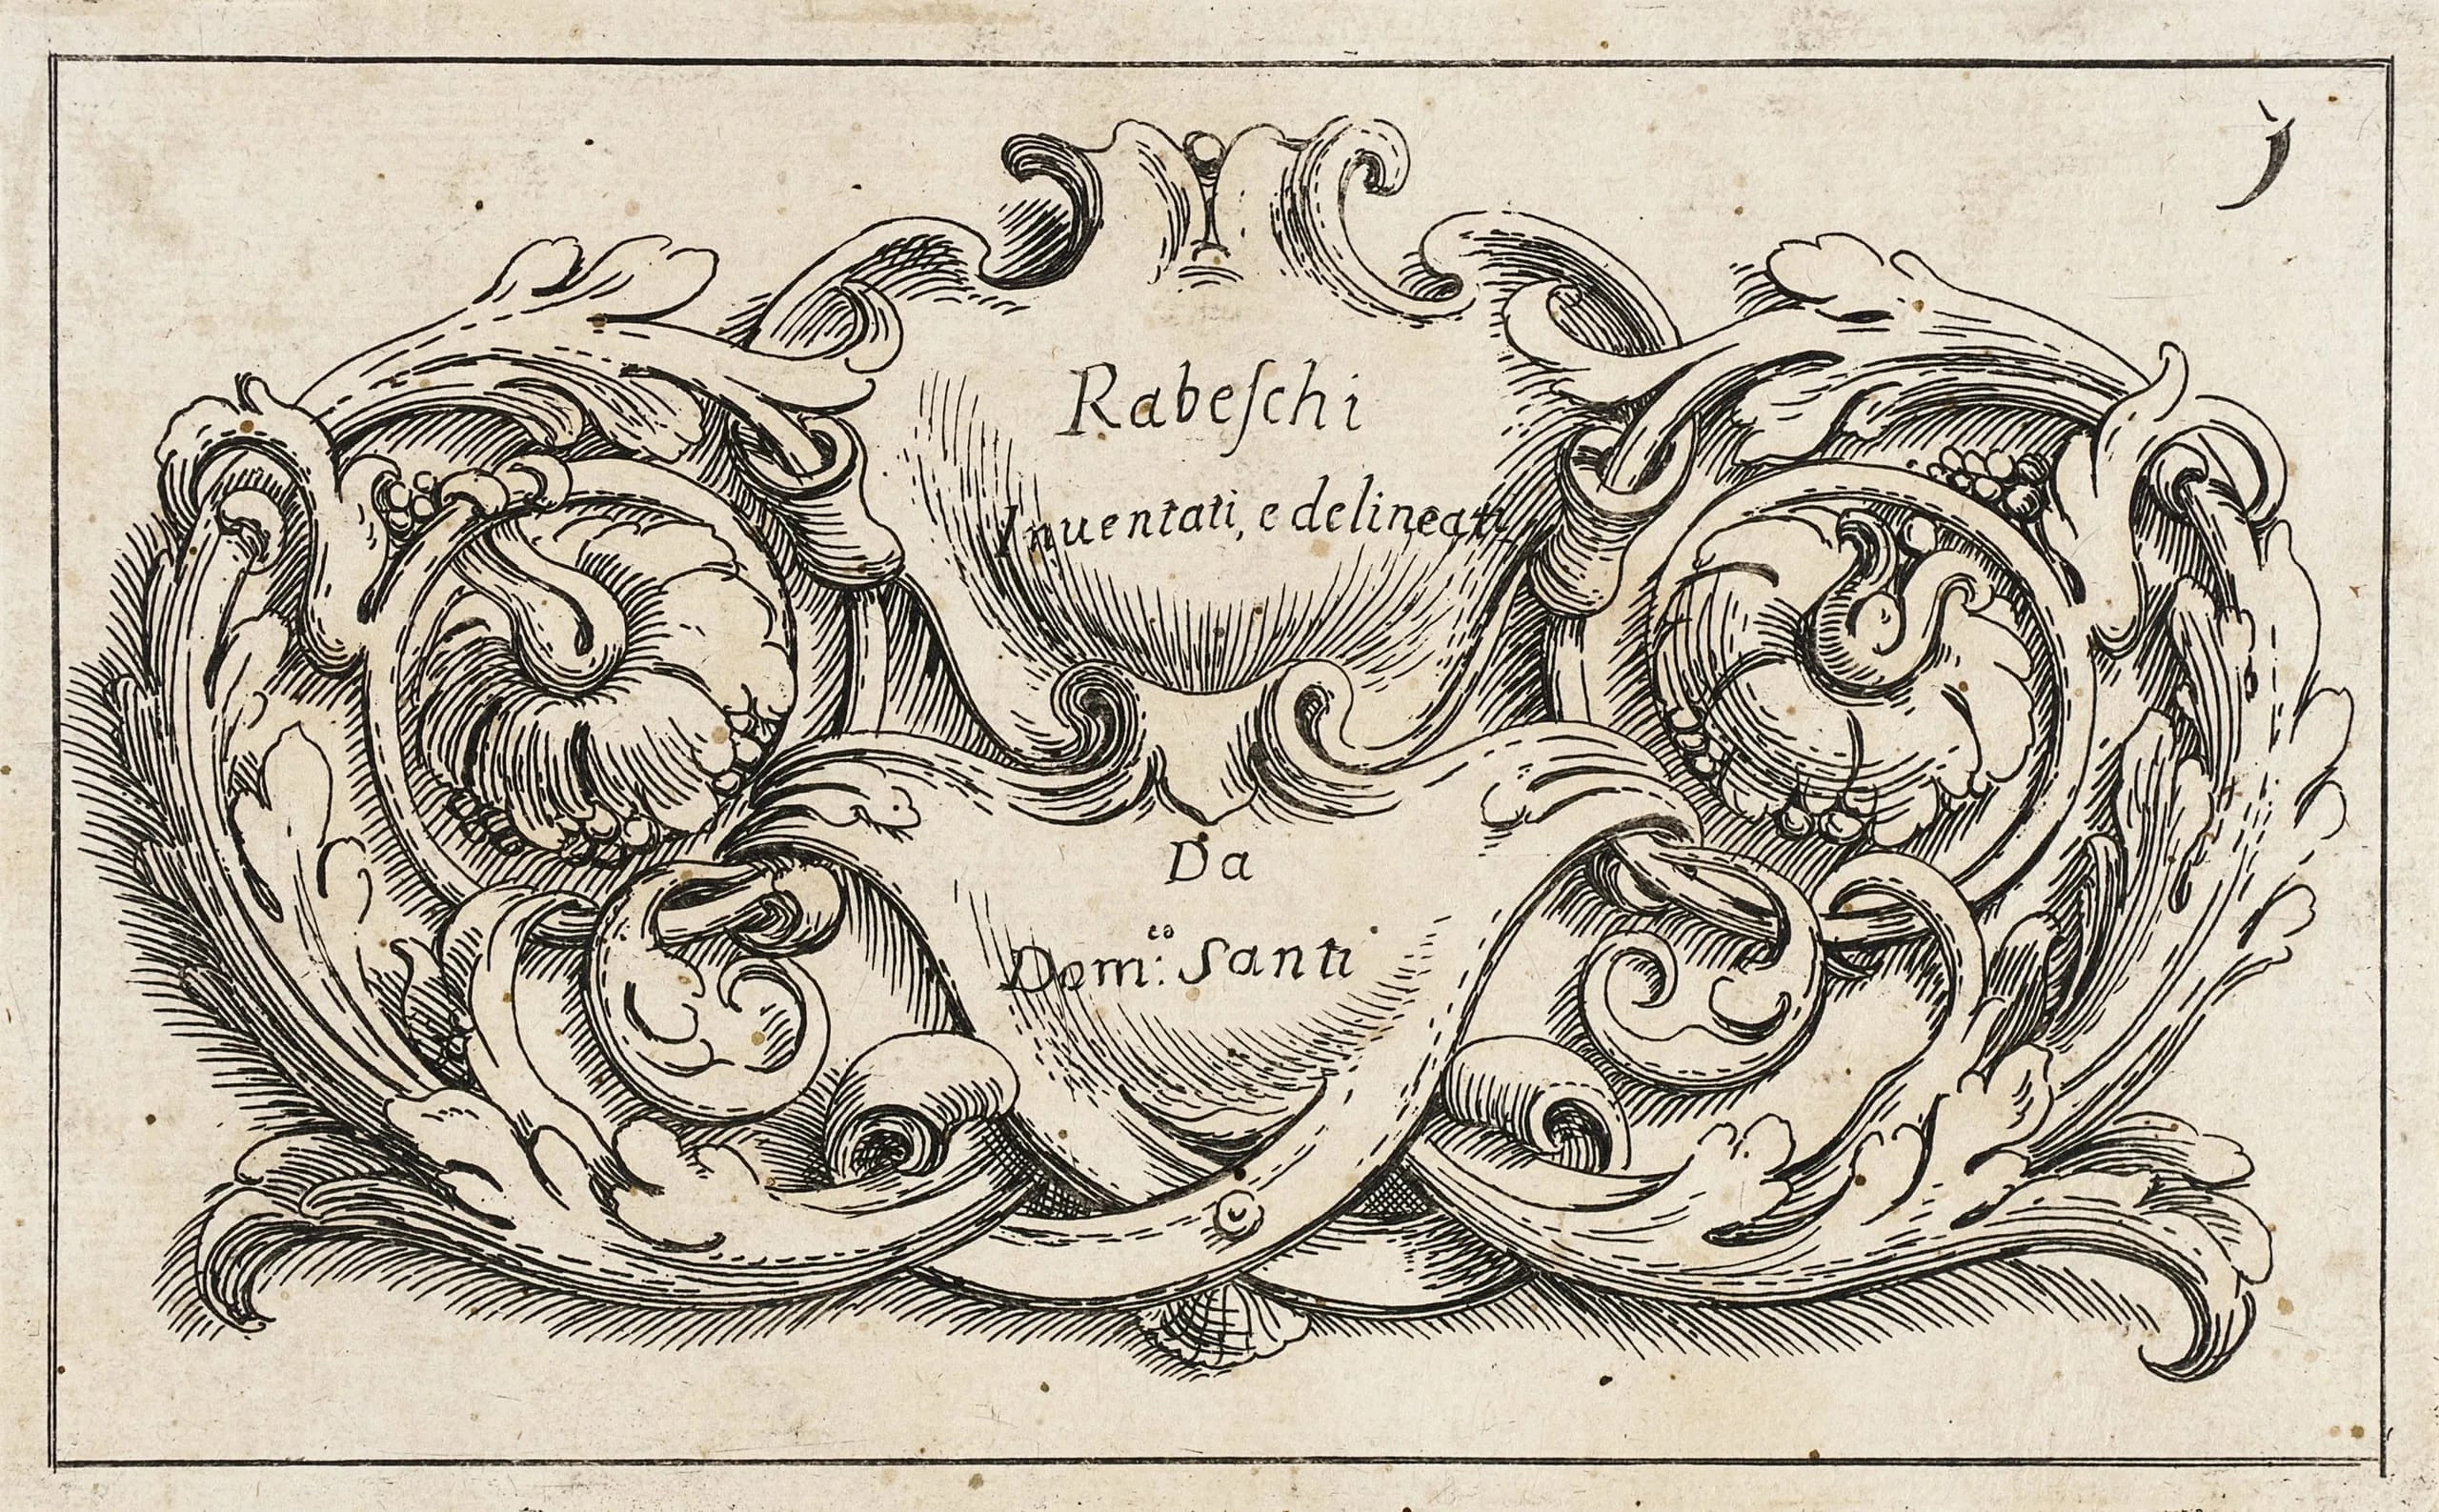 Rabeſchi
Inuentati, e delineati
Da
Dom:ᶜᵒ Santi